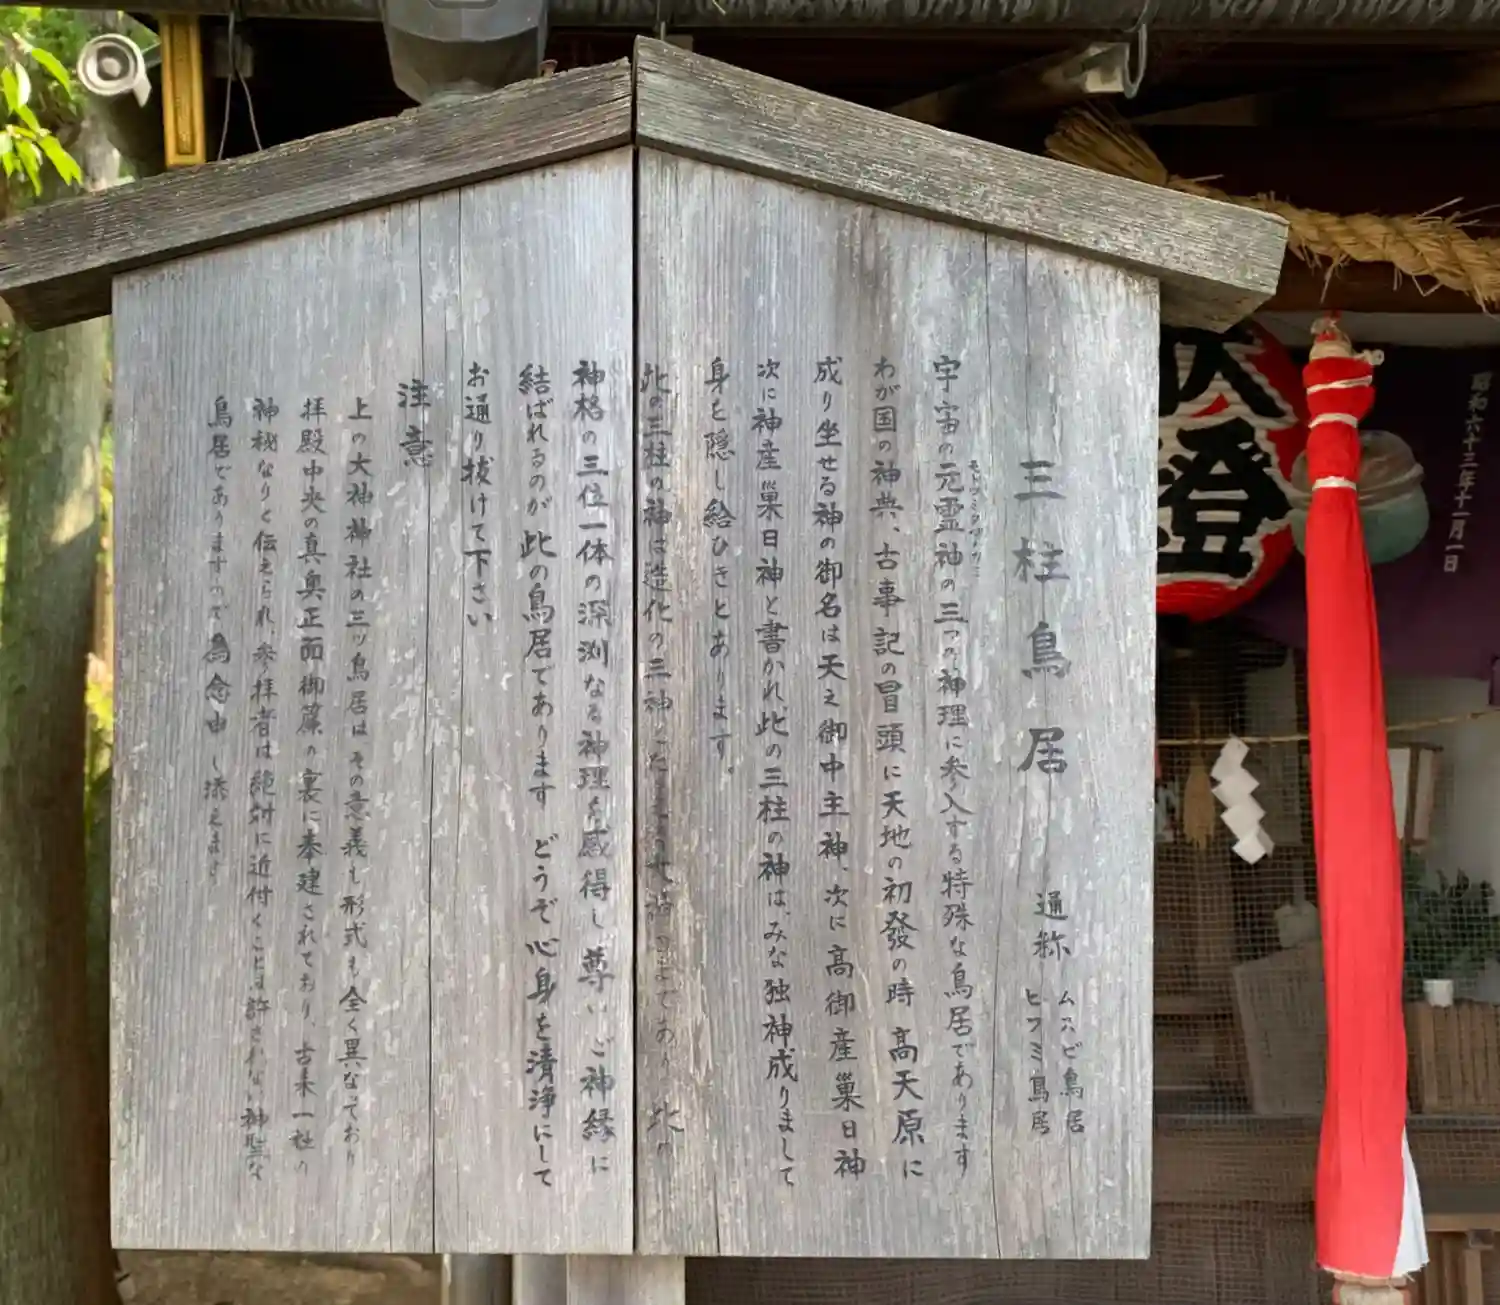 三柱鳥居
通称 ムスビ鳥居
ヒフミ鳥居
宇宙の元霊神の三つの神理に参入する特殊な鳥居であります
わが国の神典、古事記の冒頭に天地の初發の時 高天原に
成り坐せる神の御名は天之御中主神、次に高御産巣日神
次に神産巣日神と書かれ、此の三柱の神は、みな独神成りまして
身を隠し給ひきとあります。
此の三柱の神は造化の三神 であり 此の
神格の三位一体の深渕なる神理を感得し 尊いご神縁に
結ばれるのが 此の鳥居であります どうぞ心身を清浄にして
お通り抜けて下さい
注意
上の大神神社の三ッ鳥居は その意義も形式も全く異なっており
拝殿中央の真奥正面御簾の裏に奉建されており、古来一社の
神秘なりと伝えられ、参拝者は絶対に近付くことは許されない神聖な
鳥居でありますので 為念申し添えます
昭和六十三年十一月一日
燈